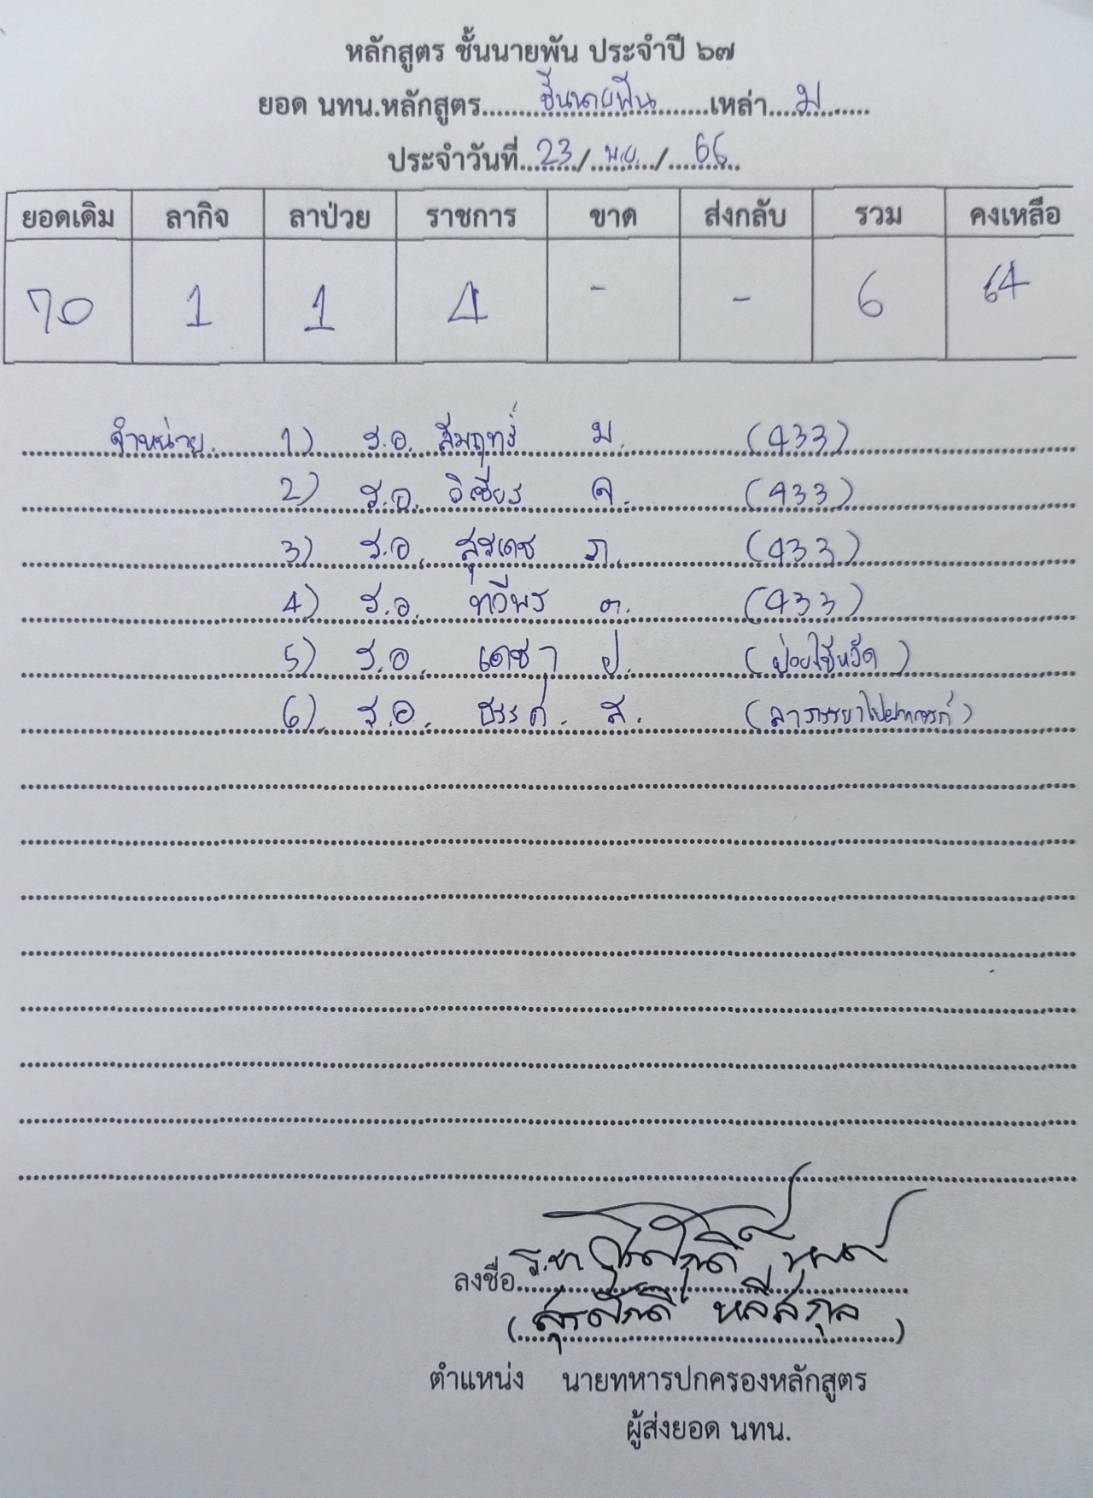 หลักสูตร ชั้นนายพัน ประจำปี ๖๗
ยอด นทน.หลักสูตร ชั้นนายพัน เหล่า ม
ประจำวันที่ 23 / พ.ย. / 66
ยอดเดิม ลากิจ ลาป่วย ราชการ ขาด ส่งกลับ รวม คงเหลือ
70 1 1 4 - - 6 64
จำหน่าย 1) ร.อ. สัมฤทธิ์ ม. (433)
2) ร.อ. วิเชียร ค. (433)
3) ร.อ. สุรเดช ภ. (433)
4) ร.อ. ทวีพร ต. (433)
5) ร.อ. เดชา ป. (ป่วยไข้หวัด)
6) ร.อ. ส. (ลาภรรยาไปฝากครรภ์)
ลงชื่อ
(สุรศักดิ์ หลีสกุล)
ตำแหน่ง นายทหารปกครองหลักสูตร
ผู้ส่งยอด นทน.